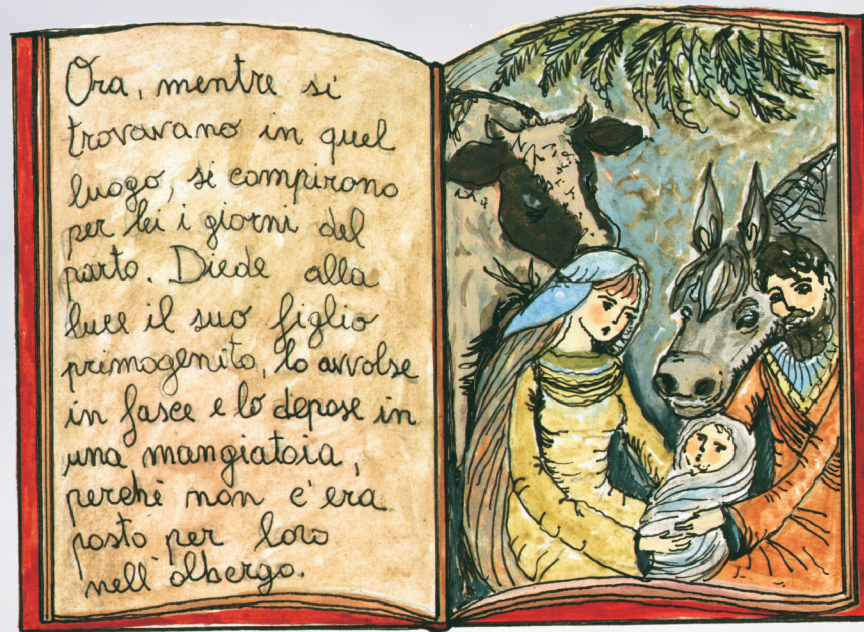 Ora, mentre si
trovavano in quel
luogo, si compirono
per lei i giorni del
parto. Diede alla
luce il suo figlio
primogenito, lo avvolse
in fasce e lo depose in
una mangiatoia,
perché non c'era
posto per loro
nell'albergo.